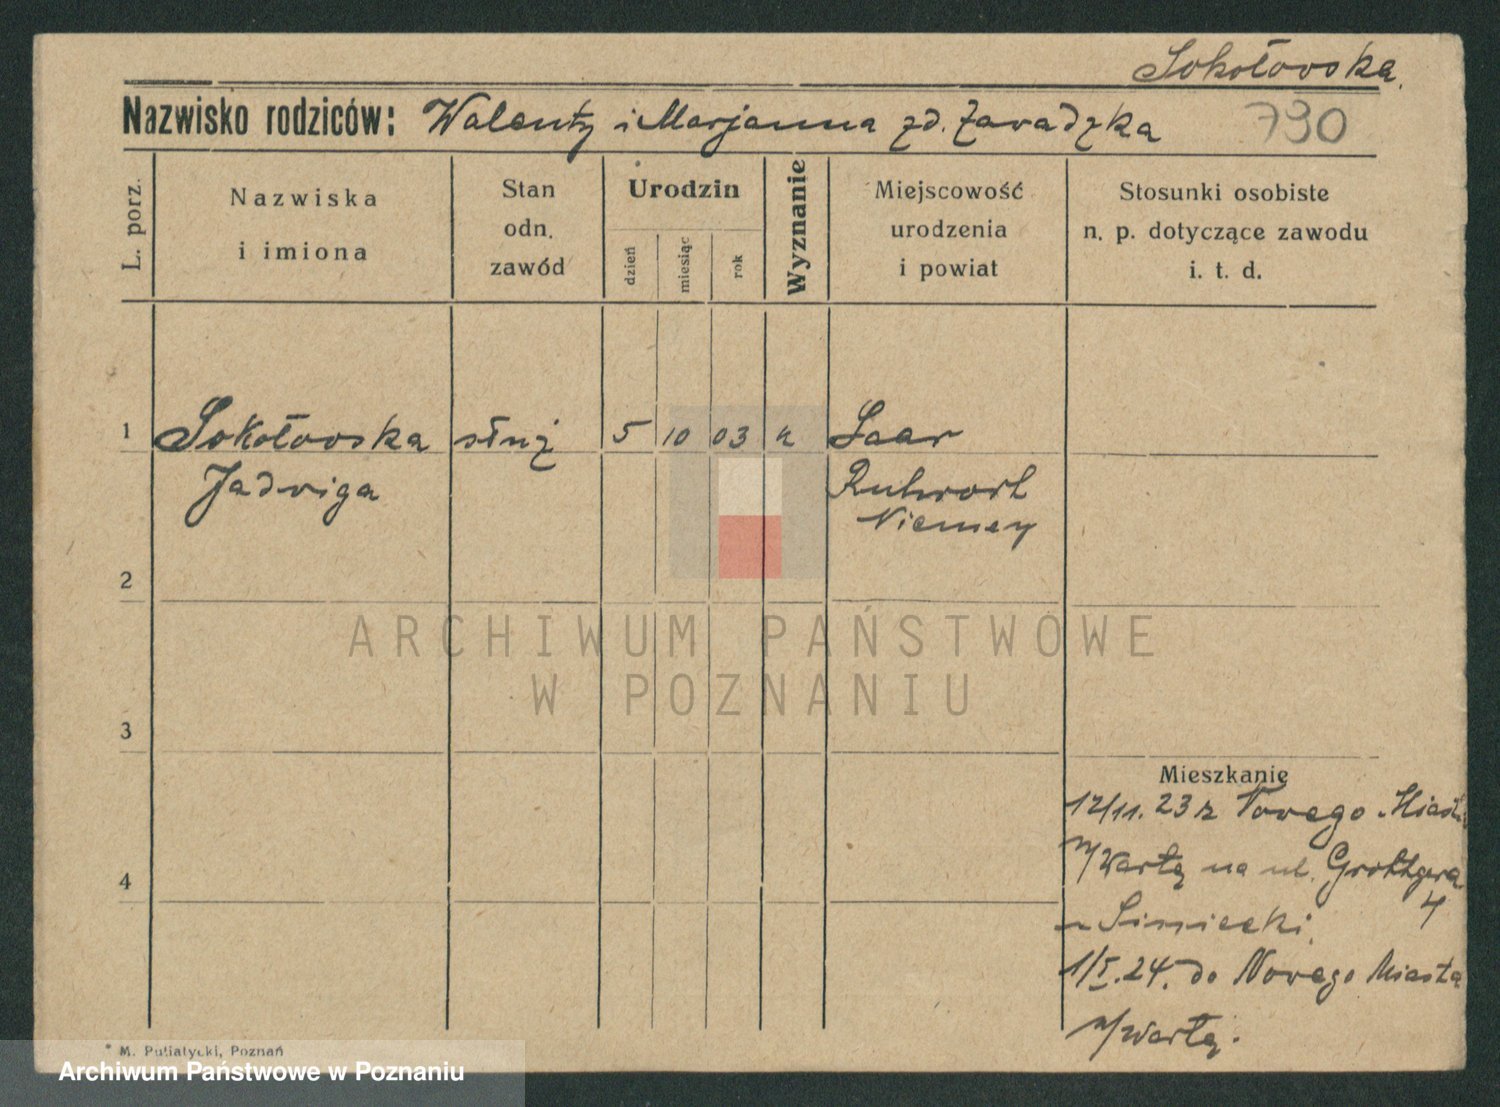 Sokołowska.
Nazwisko rodziców: Walenty i Marjanna zd. Zawadzka 790
L. porz.
Nazwiska
i imiona
Stan
odn.
zawód
Urodzin
dzień
miesiąc
rok
Wyznanie
Miejscowość
urodzenia
i powiat
Stosunki osobiste
n. p. dotyczące zawodu
i. t. d.
1 Sokołowska służ 5 10 03 k Laar
Jadwiga Ruhrort
Niemcy
2
3
4
ARCHIWUM PAŃSTWOWE
W POZNANIU
Mieszkanie
12/11. 23 z Nowego Miasta
n/Wartą na ul. Grottgera
4
u Simiecki.
1/I. 24. do Nowego Miasta
n/Wartą.
* M. Putiatycki, Poznań
Archiwum Państwowe w Poznaniu